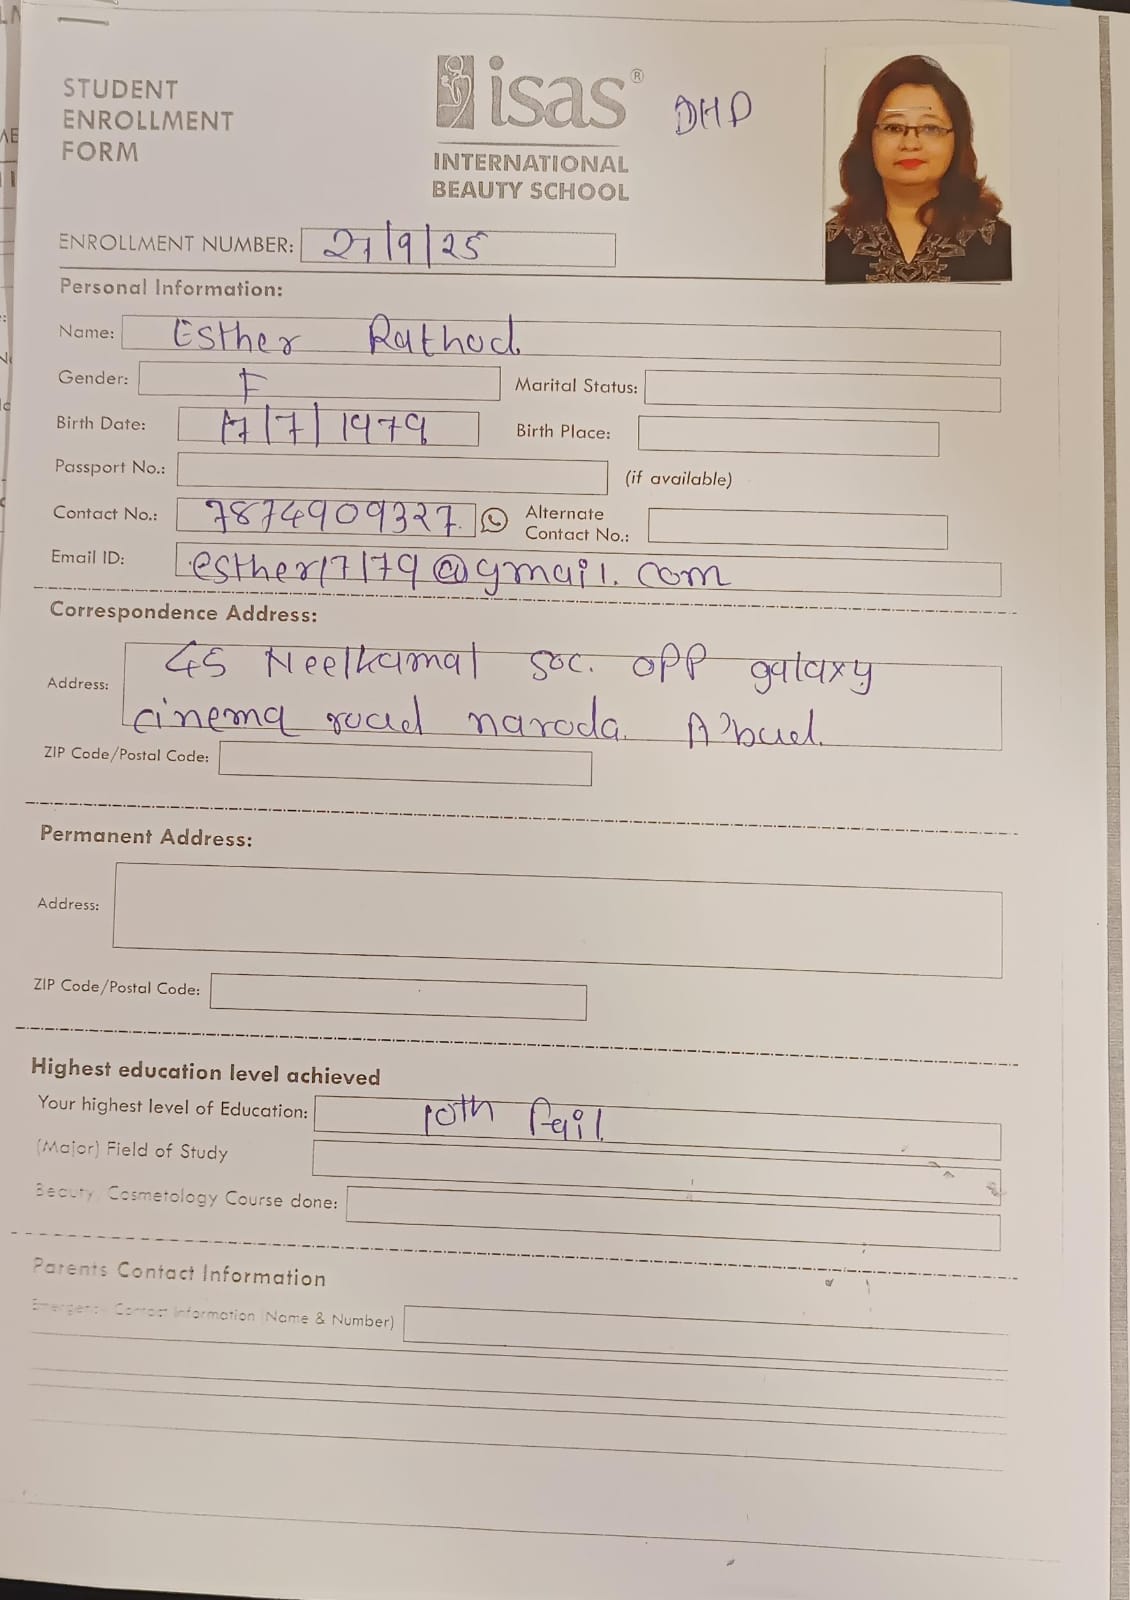 STUDENT
ENROLLMENT
FORM
isas®
INTERNATIONAL
BEAUTY SCHOOL
DHD
ENROLLMENT NUMBER: 27/9/25
Personal Information:
Name: Esther Rathod
Gender: F Marital Status:
Birth Date: 17/7/1979 Birth Place:
Passport No.: (if available)
Contact No.: 7874909327 Alternate
Contact No.:
Email ID: esther17179@gmail.com
Correspondence Address:
45 Neelkamal soc. opp galaxy
Address:
cinema road naroda. A'bad.
ZIP Code/Postal Code:
Permanent Address:
Address:
ZIP Code/Postal Code:
Highest education level achieved
Your highest level of Education: 10th fail
(Major) Field of Study
Beauty/Cosmetology Course done:
Parents Contact Information
Emergency Contact Information (Name & Number)